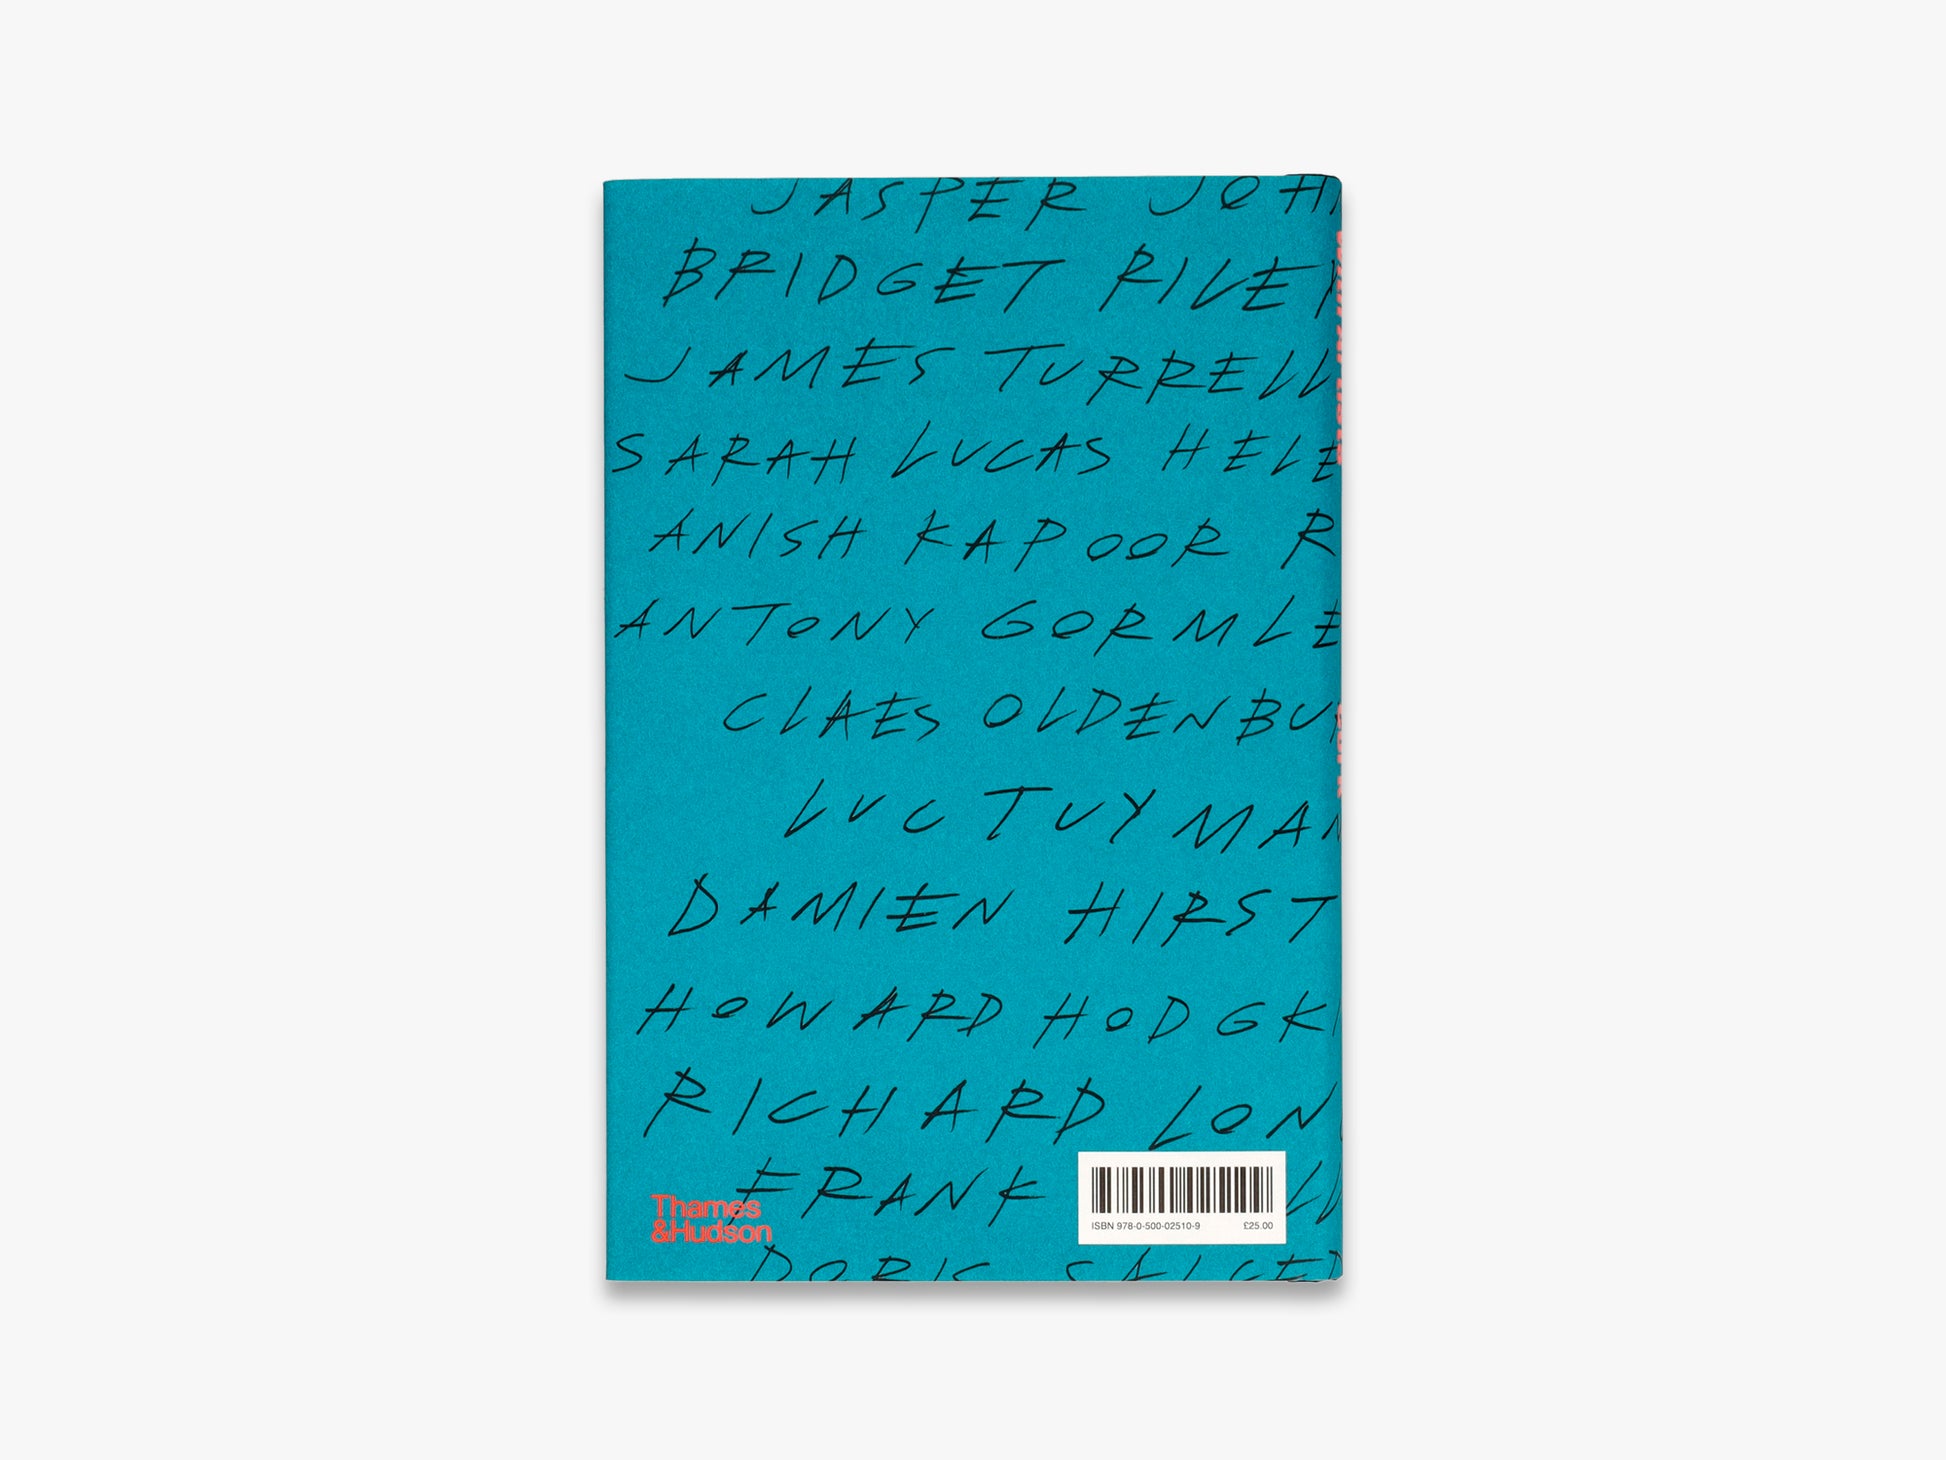 JASPER JOH
BRIDGET RILEY
JAMES TURRELL
SARAH LUCAS HELE
ANISH KAPOOR R
ANTONY GORMLE
CLAES OLDENBUR
LUC TUYMAN
DAMIEN HIRST
HOWARD HODGKI
RICHARD LONG
FRANK
DORIS SALCED
Thames
&Hudson
ISBN 978-0-500-02510-9 £25.00